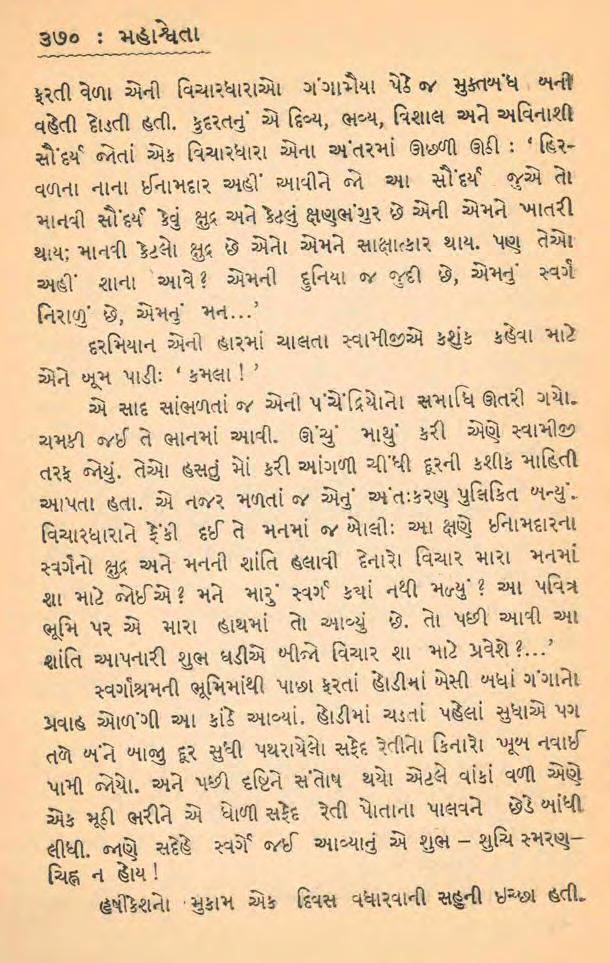 ૩૭૦ : મહાશ્વેતા
ફરતી વેળા એની વિચારધારાઓ ગંગામૈયા પેઠે જ મુક્તબંધ બની
વહેતી દોડતી હતી. કુદરતનું એ દિવ્ય, ભવ્ય, વિશાલ અને અવિનાશી
સૌંદર્ય જોતાં એક વિચારધારા એના અંતરમાં ઊછળી ઊઠી : ‘ હિર-
વળના નાના ઈનામદાર અહીં આવીને જો આ સૌંદર્ય જુએ તો
માનવી સૌંદર્ય કેવું ક્ષુદ્ર અને કેટલું ક્ષણભંગુર છે એની એમને ખાતરી
થાય; માનવી કેટલો ક્ષુદ્ર છે એનો એમને સાક્ષાત્કાર થાય. પણ તેઓ
અહીં શાના આવે? એમની દુનિયા જ જુદી છે, એમનું સ્વર્ગ
નિરાળું છે, એમનું મન...’
દરમિયાન એની હારમાં ચાલતા સ્વામીજીએ કશુંક કહેવા માટે
એને બૂમ પાડીઃ ‘ કમલા ! ’
એ સાદ સાંભળતાં જ એની પંચેંદ્રિયોનો સમાધિ ઊતરી ગયો.
ચમકી જઈ તે ભાનમાં આવી. ઊંચું માથું કરી એણે સ્વામીજી
તરફ જોયું. તેઓ હસતું મોં કરી આંગળી ચીંધી દૂરની કશીક માહિતી
આપતા હતા. એ નજર મળતાં જ એનું અંતઃકરણ પુલિકિત બન્યું.
વિચારધારાને ફેંકી દઈ તે મનમાં જ બોલીઃ આ ક્ષણે ઈનામદારના
સ્વર્ગનો ક્ષુદ્ર અને મનની શાંતિ હલાવી દેનારો વિચાર મારા મનમાં
શા માટે જોઈએ? મને મારું સ્વર્ગ કયાં નથી મળ્યું? આ પવિત્ર
ભૂમિ પર એ મારા હાથમાં તો આવ્યું છે. તો પછી આવી આ
શાંતિ આપનારી શુભ ઘડીએ બીજો વિચાર શા માટે પ્રવેશે?...’
સ્વર્ગાશ્રમની ભૂમિમાંથી પાછા ફરતાં હોડીમાં બેસી બધાં ગંગાનો
પ્રવાહ ઓળંગી આ કાંઠે આવ્યાં. હોડીમાં ચડતાં પહેલાં સુધાએ પગ
તળે બંને બાજી દૂર સુધી પથરાયેલો સફેદ રેતીનો કિનારો ખૂબ નવાઈ
પામી જોયો. અને પછી દષ્ટિને સંતોષ થયો એટલે વાંકાં વળી એણે
એક મૂઠી ભરીને એ ધોળી સફેદ રેતી પોતાના પાલવને છેડે બાંધી
લીધી. જાણે સદેહે સ્વર્ગે જઈ આવ્યાનું એ શુભ – શુચિ સ્મરણ–
ચિહ્ન ન હોય !
હૃષીકેશનો મુકામ એક દિવસ વધારવાની સહુની ઇચ્છા હતી.